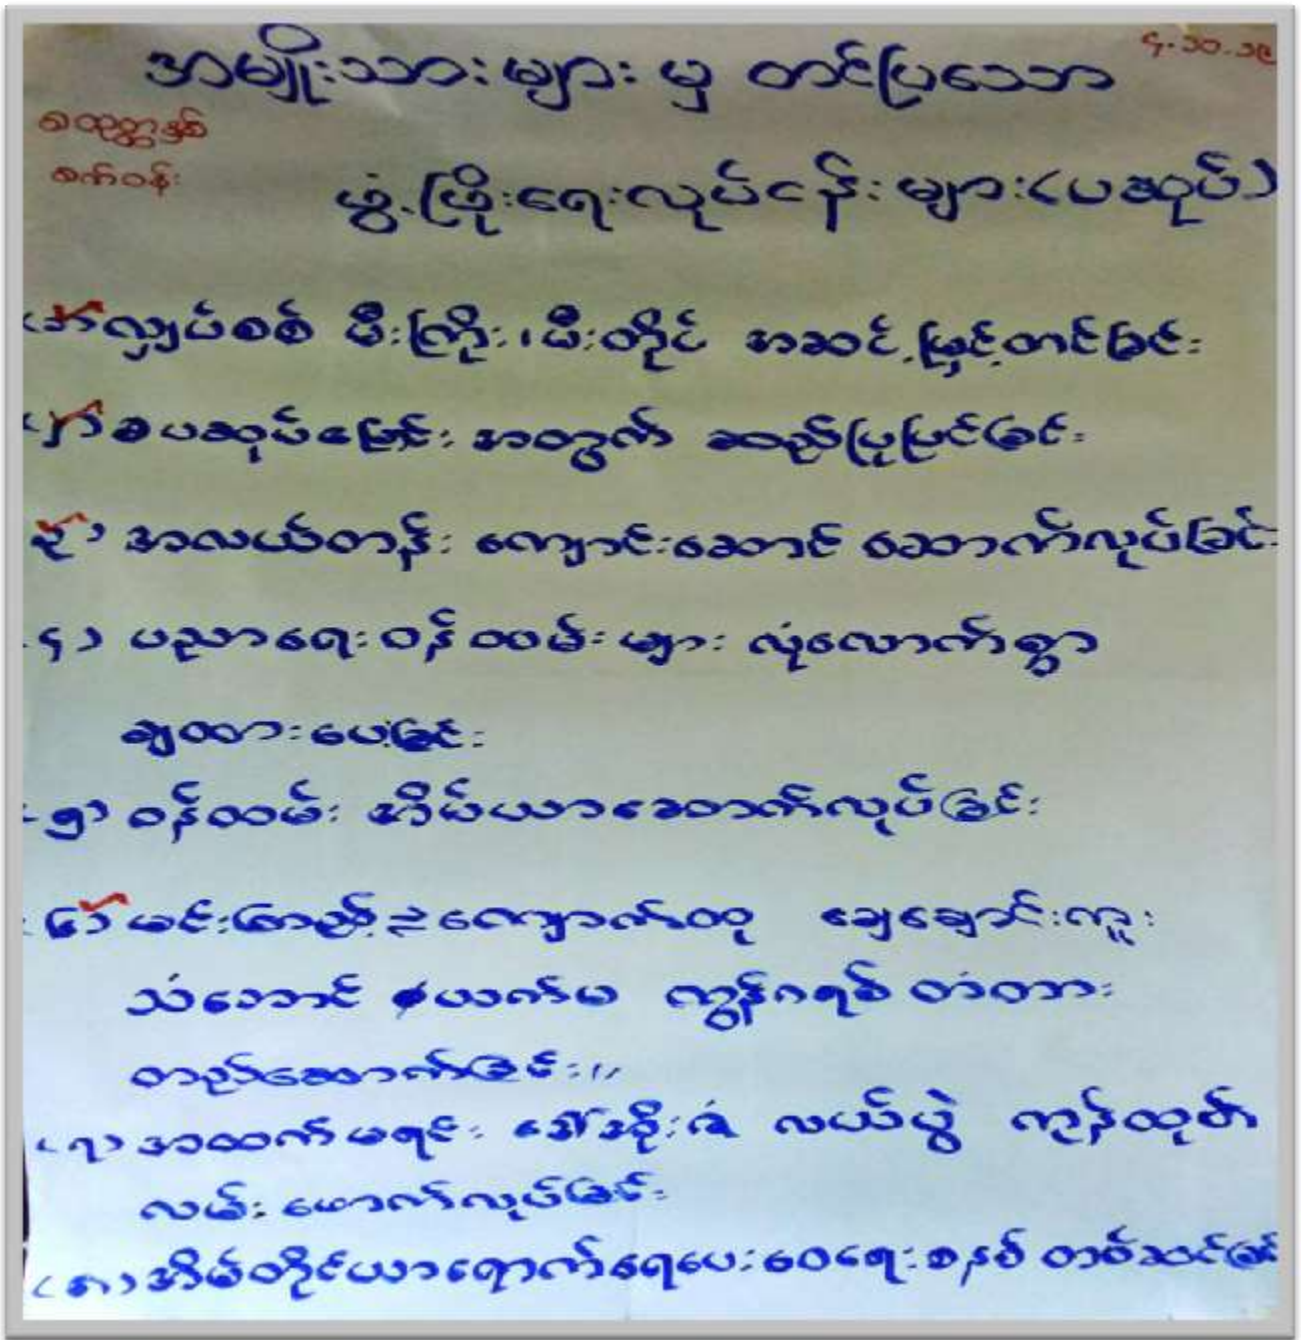 အမျိုးသားများ မှ တင်ပြသော
၄.၁၀.၁၉
စက်ဝန်း
ဖွံ့ဖြိုးရေးလုပ်ငန်းများ(ပဆုပ်)
(၁) လျှပ်စစ် မီးကြိုး၊ မီးတိုင် အဆင့်မြှင့်တင်ခြင်း
(၂) ပဆုပ်မြောင်း အတွက် ဆည်ပြုပြင်ခြင်း
၃) အလယ်တန်း ကျောင်းဆောင် ဆောက်လုပ်ခြင်း
၄) ပညာရေးဝန်ထမ်းများ လုံလောက်စွာ
ချထားပေးခြင်း
၅) ဝန်ထမ်း အိမ်ယာဆောက်လုပ်ခြင်း
၆) ကျောက်ထု ချေချောင်းကူး
သံဘောင် ကွန်ကရစ် တံတား
တည်ဆောက်ခြင်း။
(၇) အထက်မရင်း လယ်ပွဲ ကုန်ထုတ်
လမ်း ဖောက်လုပ်ခြင်း
(၈) အိမ်တိုင်ယာရောက်ရေပေးဝေရေးစနစ် တပ်ဆင်ခြင်